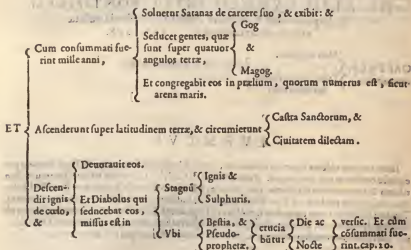 Solnetur Satanas de carcere ſuo , & exibit: &
Cum conſummati fue-
rint mille anni ,
Seducet gentes, quæ
ſunt ſuper quatuor
angulos terræ,
Gog
&
Magog.
Et congregabit eos in prælium, quorum numerus eſt , ſicut
arena maris.
ET
Aſcenderunt ſuper latitudinem terræ, & circumierunt
Caſtra Sanctorum, &
Ciuitatem dilectam .
Deuorauit eos.
Deſcen-
dit ignis
de cœlo,
&
Et Diabolus qui
ſeducebat eos ,
miſſus eſt in
Stagnũ
Ignis &
Sulphuris.
Vbi
Beſtia, &
Pſeudo-
prophetæ,
crucia
bũtur
Die ac
Nocte
verſic. Et cùm
cõſummati fue-
rint.cap.20.